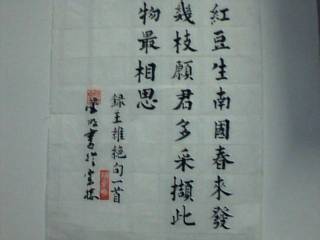 紅豆生南國春來發
幾枝願君多采擷此
物最相思
録王維絶句一首